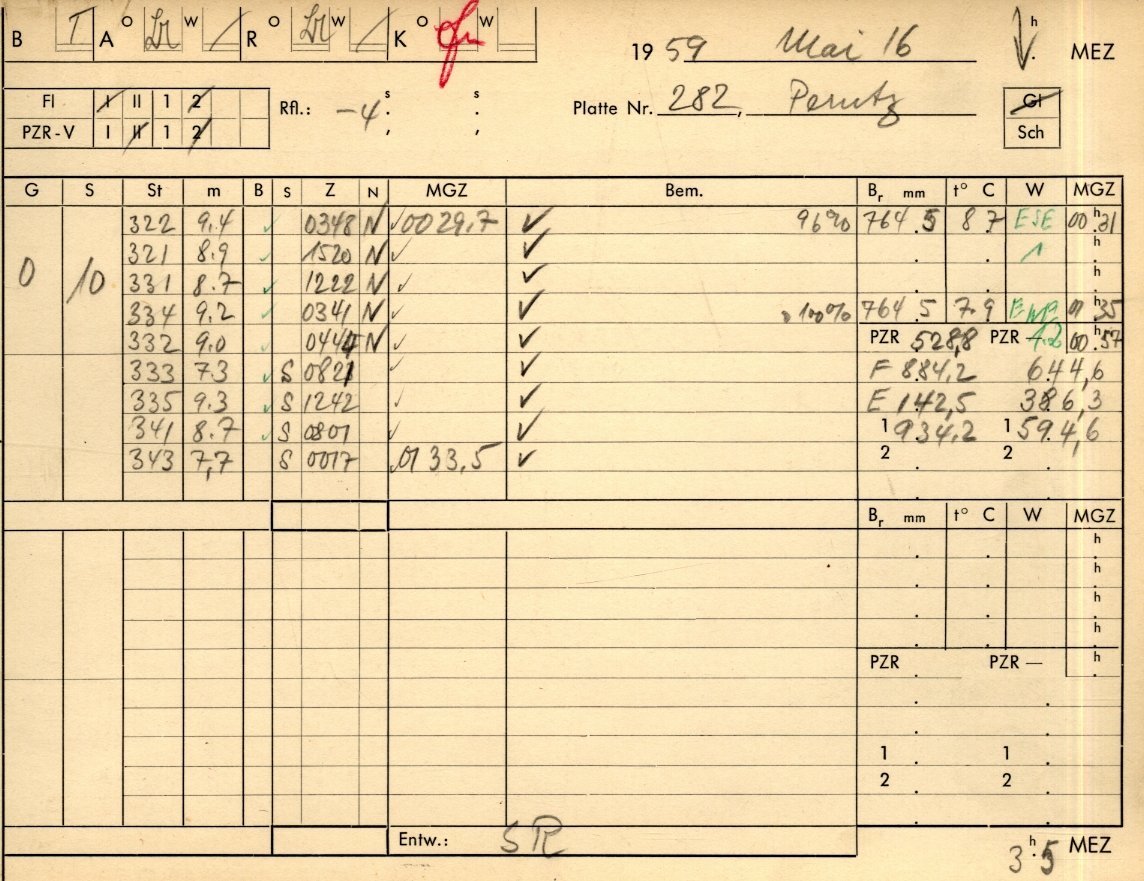 B T A O W R O W K O W
19 59 Mai 16 h MEZ
Fl I II 1 2 Rfl.: -4 s s Platte Nr. 282, Perutz Gl
PZR-V I II 1 2 Sch
G S St m B S Z N MGZ Bem. Br mm t° C W MGZ
0 10 322 9.4 ✓ 0348 N ✓0029,7 ✓ 96% 764.5 8.7 ESE 00h31
321 8.9 ✓ 1520 N ✓ ✓ 1 h
331 8.7 ✓ 1222 N ✓ ✓ h
334 9.2 ✓ 0341 N ✓ ✓ 100% 764.5 7.9 01h35
332 9.0 ✓ 0444 N ✓ ✓ PZR 528,8 PZR 1.2 00h57
333 7.3 ✓ S 0821 ✓ ✓ F 884,2 644,6
335 9.3 ✓ S 1242 ✓ ✓ E 142,5 386,3
341 8.7 ✓ S 0801 ✓ ✓ 1 934,2 1 594,6
343 7,7 S 0017 ✓0133,5 ✓ 2 2
Br mm t° C W MGZ
h
h
h
h
PZR PZR — h
1 1
2 2
Entw.: SR
3h.5 MEZ